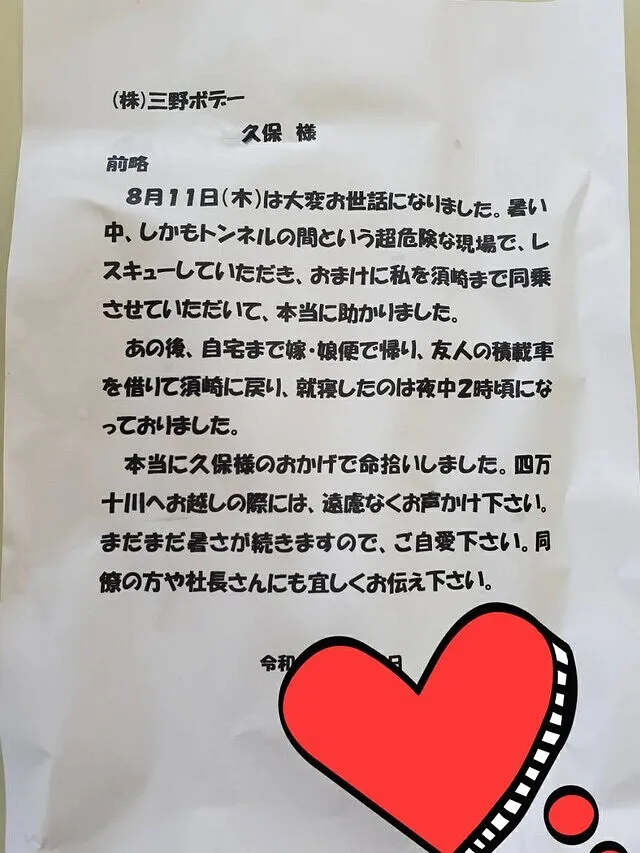 (株)三野ボデー
久保 様
前略
8月11日(木)は大変お世話になりました。暑い
中、しかもトンネルの間という超危険な現場で、レ
スキューしていただき、おまけに私を須崎まで同乗
させていただいて、本当に助かりました。
あの後、自宅まで嫁・娘便で帰り、友人の積載車
を借りて須崎に戻り、就寝したのは夜中2時頃にな
っておりました。
本当に久保様のおかげで命拾いしました。四万
十川へお越しの際には、遠慮なくお声かけ下さい。
まだまだ暑さが続きますので、ご自愛下さい。同
僚の方や社長さんにも宜しくお伝え下さい。
令和 日